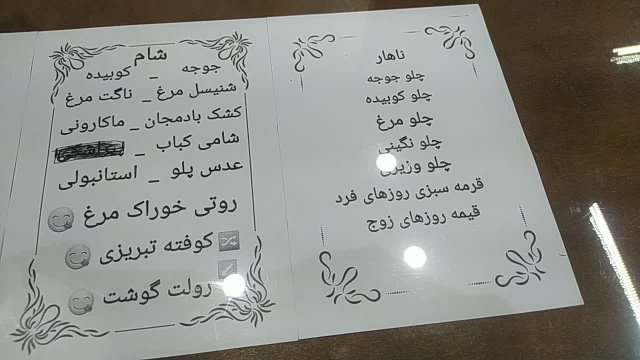 ناهار
چلو جوجه
چلو کوبیده
چلو مرغ
چلو نگینی
چلو وزیری
قرمه سبزی روزهای فرد
قیمه روزهای زوج
شام
جوجه _ کوبیده
شنیسل مرغ _ ناگت مرغ
کشک بادمجان _ ماکارونی
شامی کباب _
عدس پلو _ استانبولی
روتی خوراک مرغ 😋
🔀 کوفته تبریزی 😋
رولت گوشت 😋